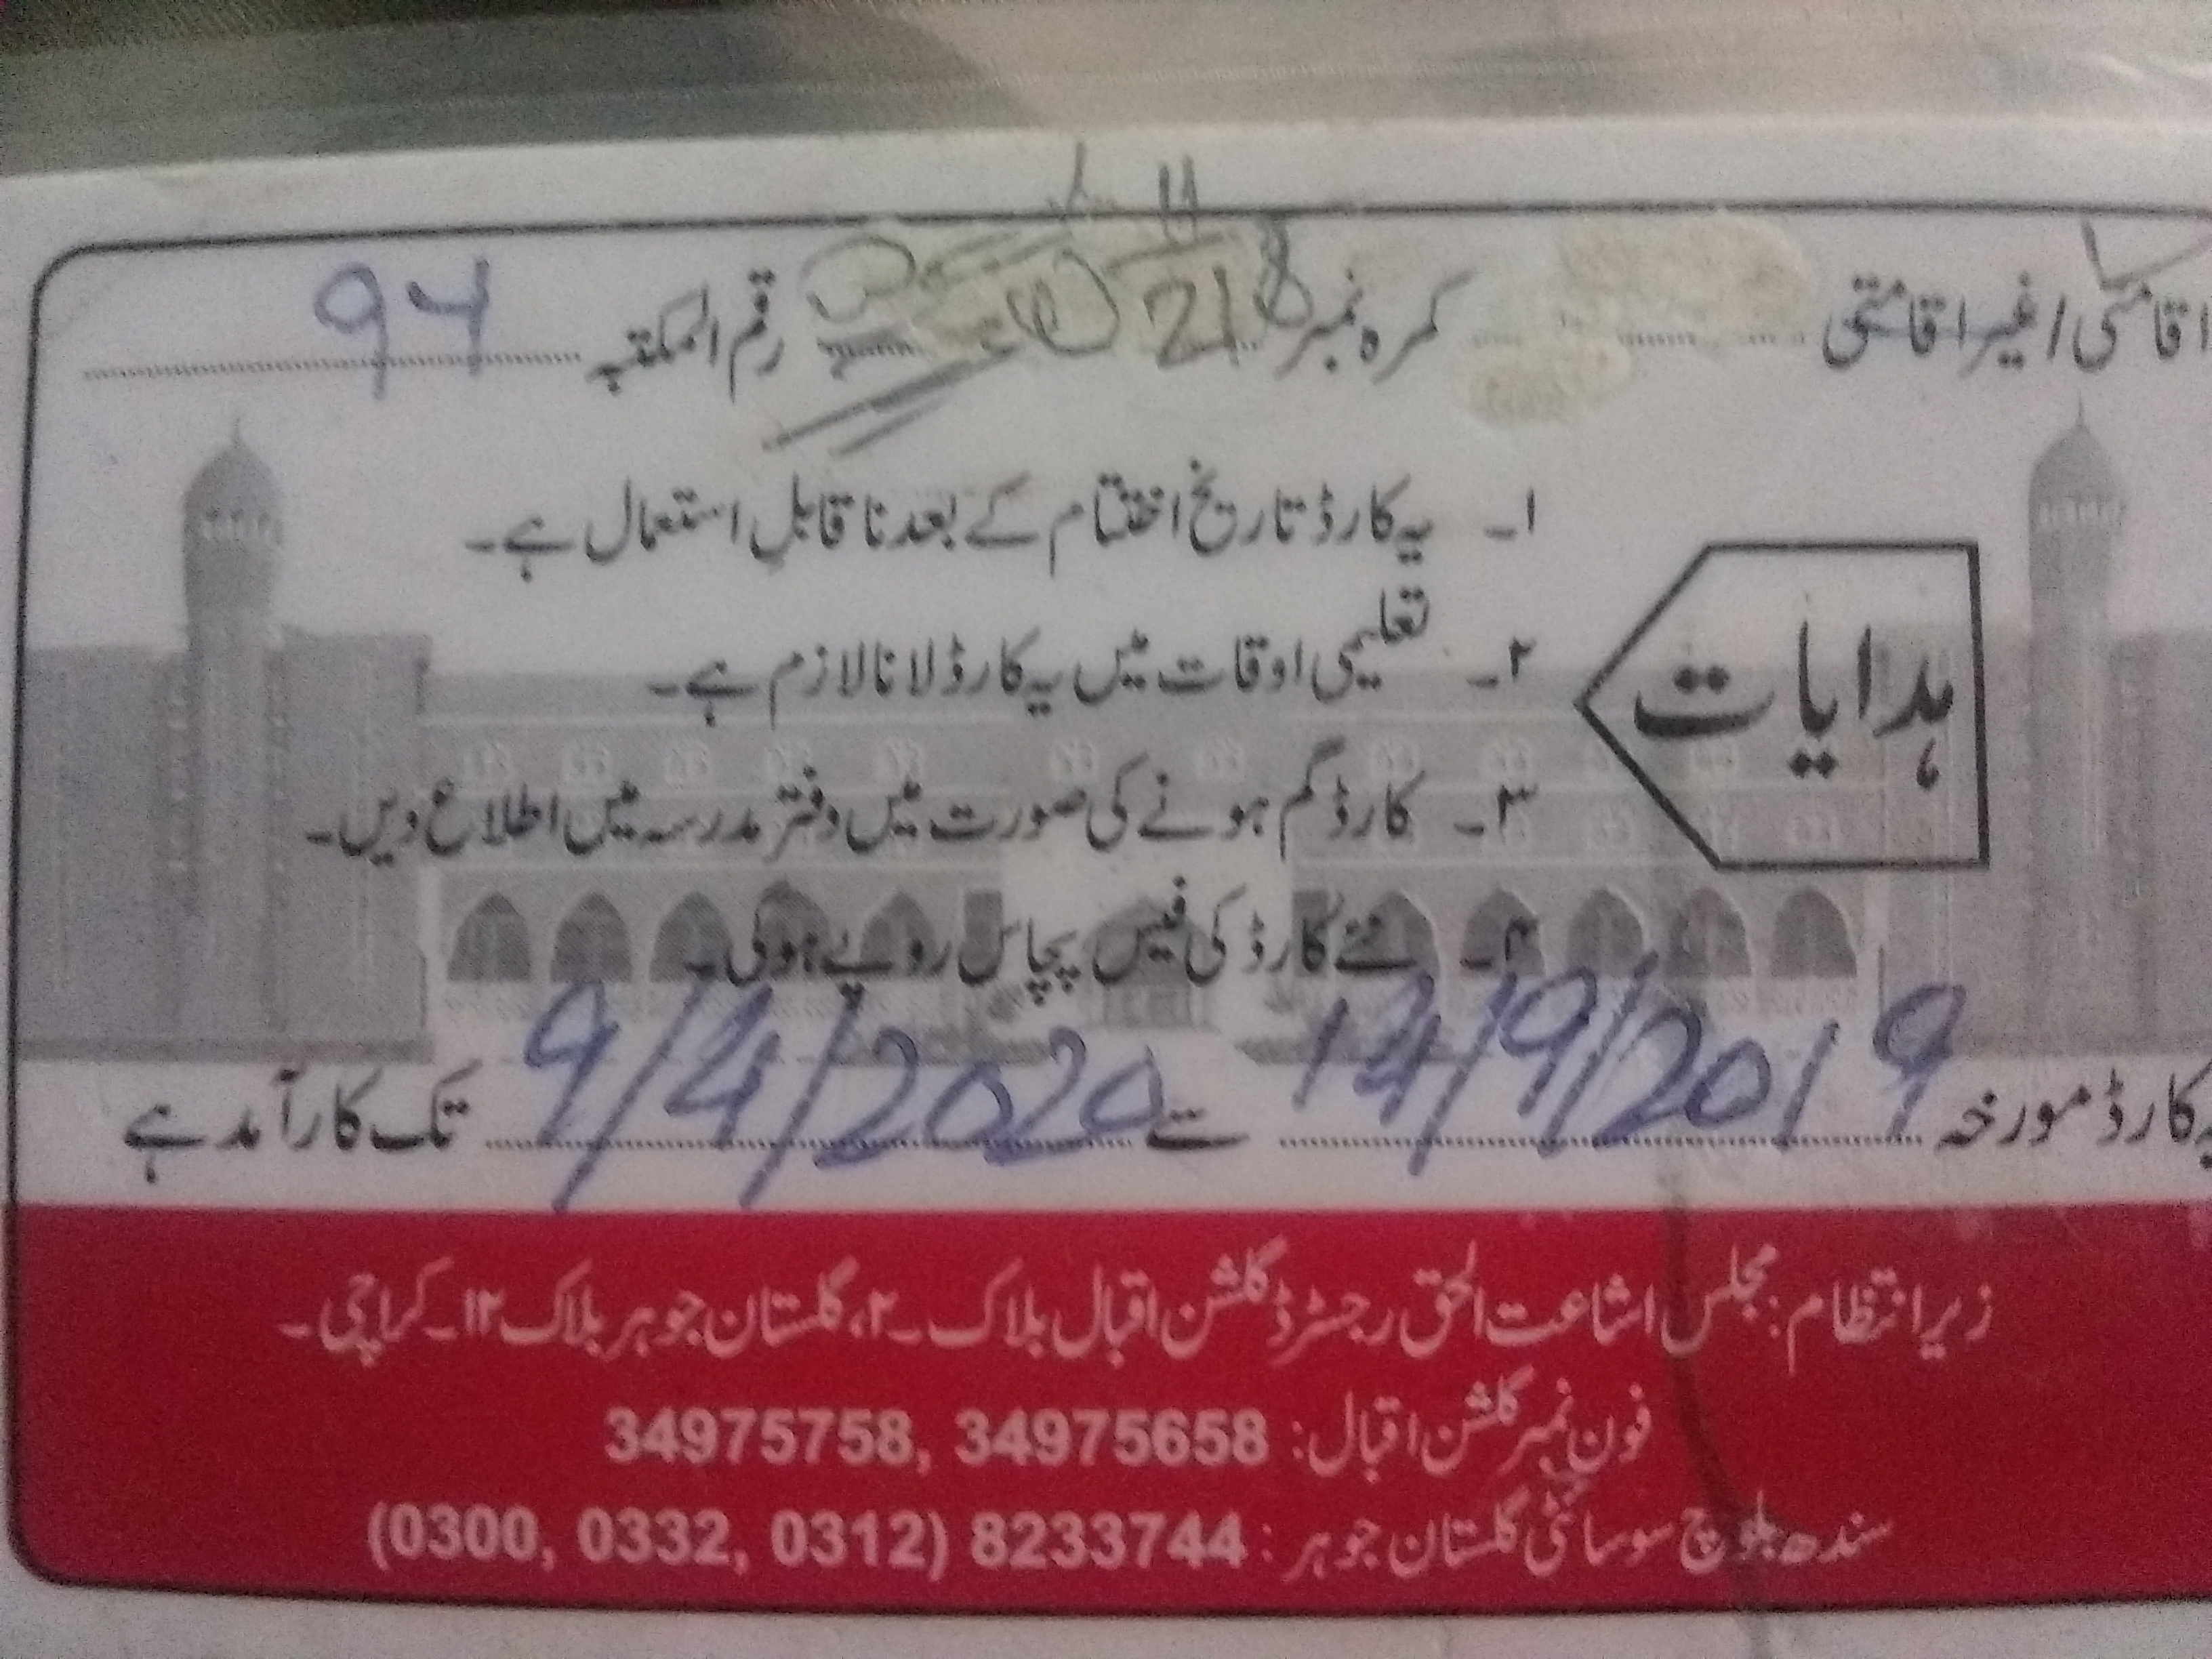 اقامتی / غیر اقامتی کمرہ نمبر 21 رقم المکتبہ 94
ہدایات
۱۔ یہ کارڈ تاریخ اختتام کے بعد نا قابل استعمال ہے۔
۲۔ تعلیمی اوقات میں یہ کارڈ لانا لازم ہے۔
۳۔ کارڈ گم ہونے کی صورت میں دفتر مدرسہ میں اطلاع دیں۔
۴۔ نئے کارڈ کی فیس پچاس روپے ہوگی۔
یہ کارڈ مورخہ 14/9/2019 سے 9/4/2020 تک کارآمد ہے
زیر انتظام: مجلس اشاعت الحق رجسٹرڈ گلشن اقبال بلاک ۔۲، گلستان جوہر بلاک ۱۲۔ کراچی۔
فون نمبر گلشن اقبال: 34975658 ,34975758
سندھ بلوچ سوسائٹی گلستان جوہر: 8233744 (0312 ,0332 ,0300)